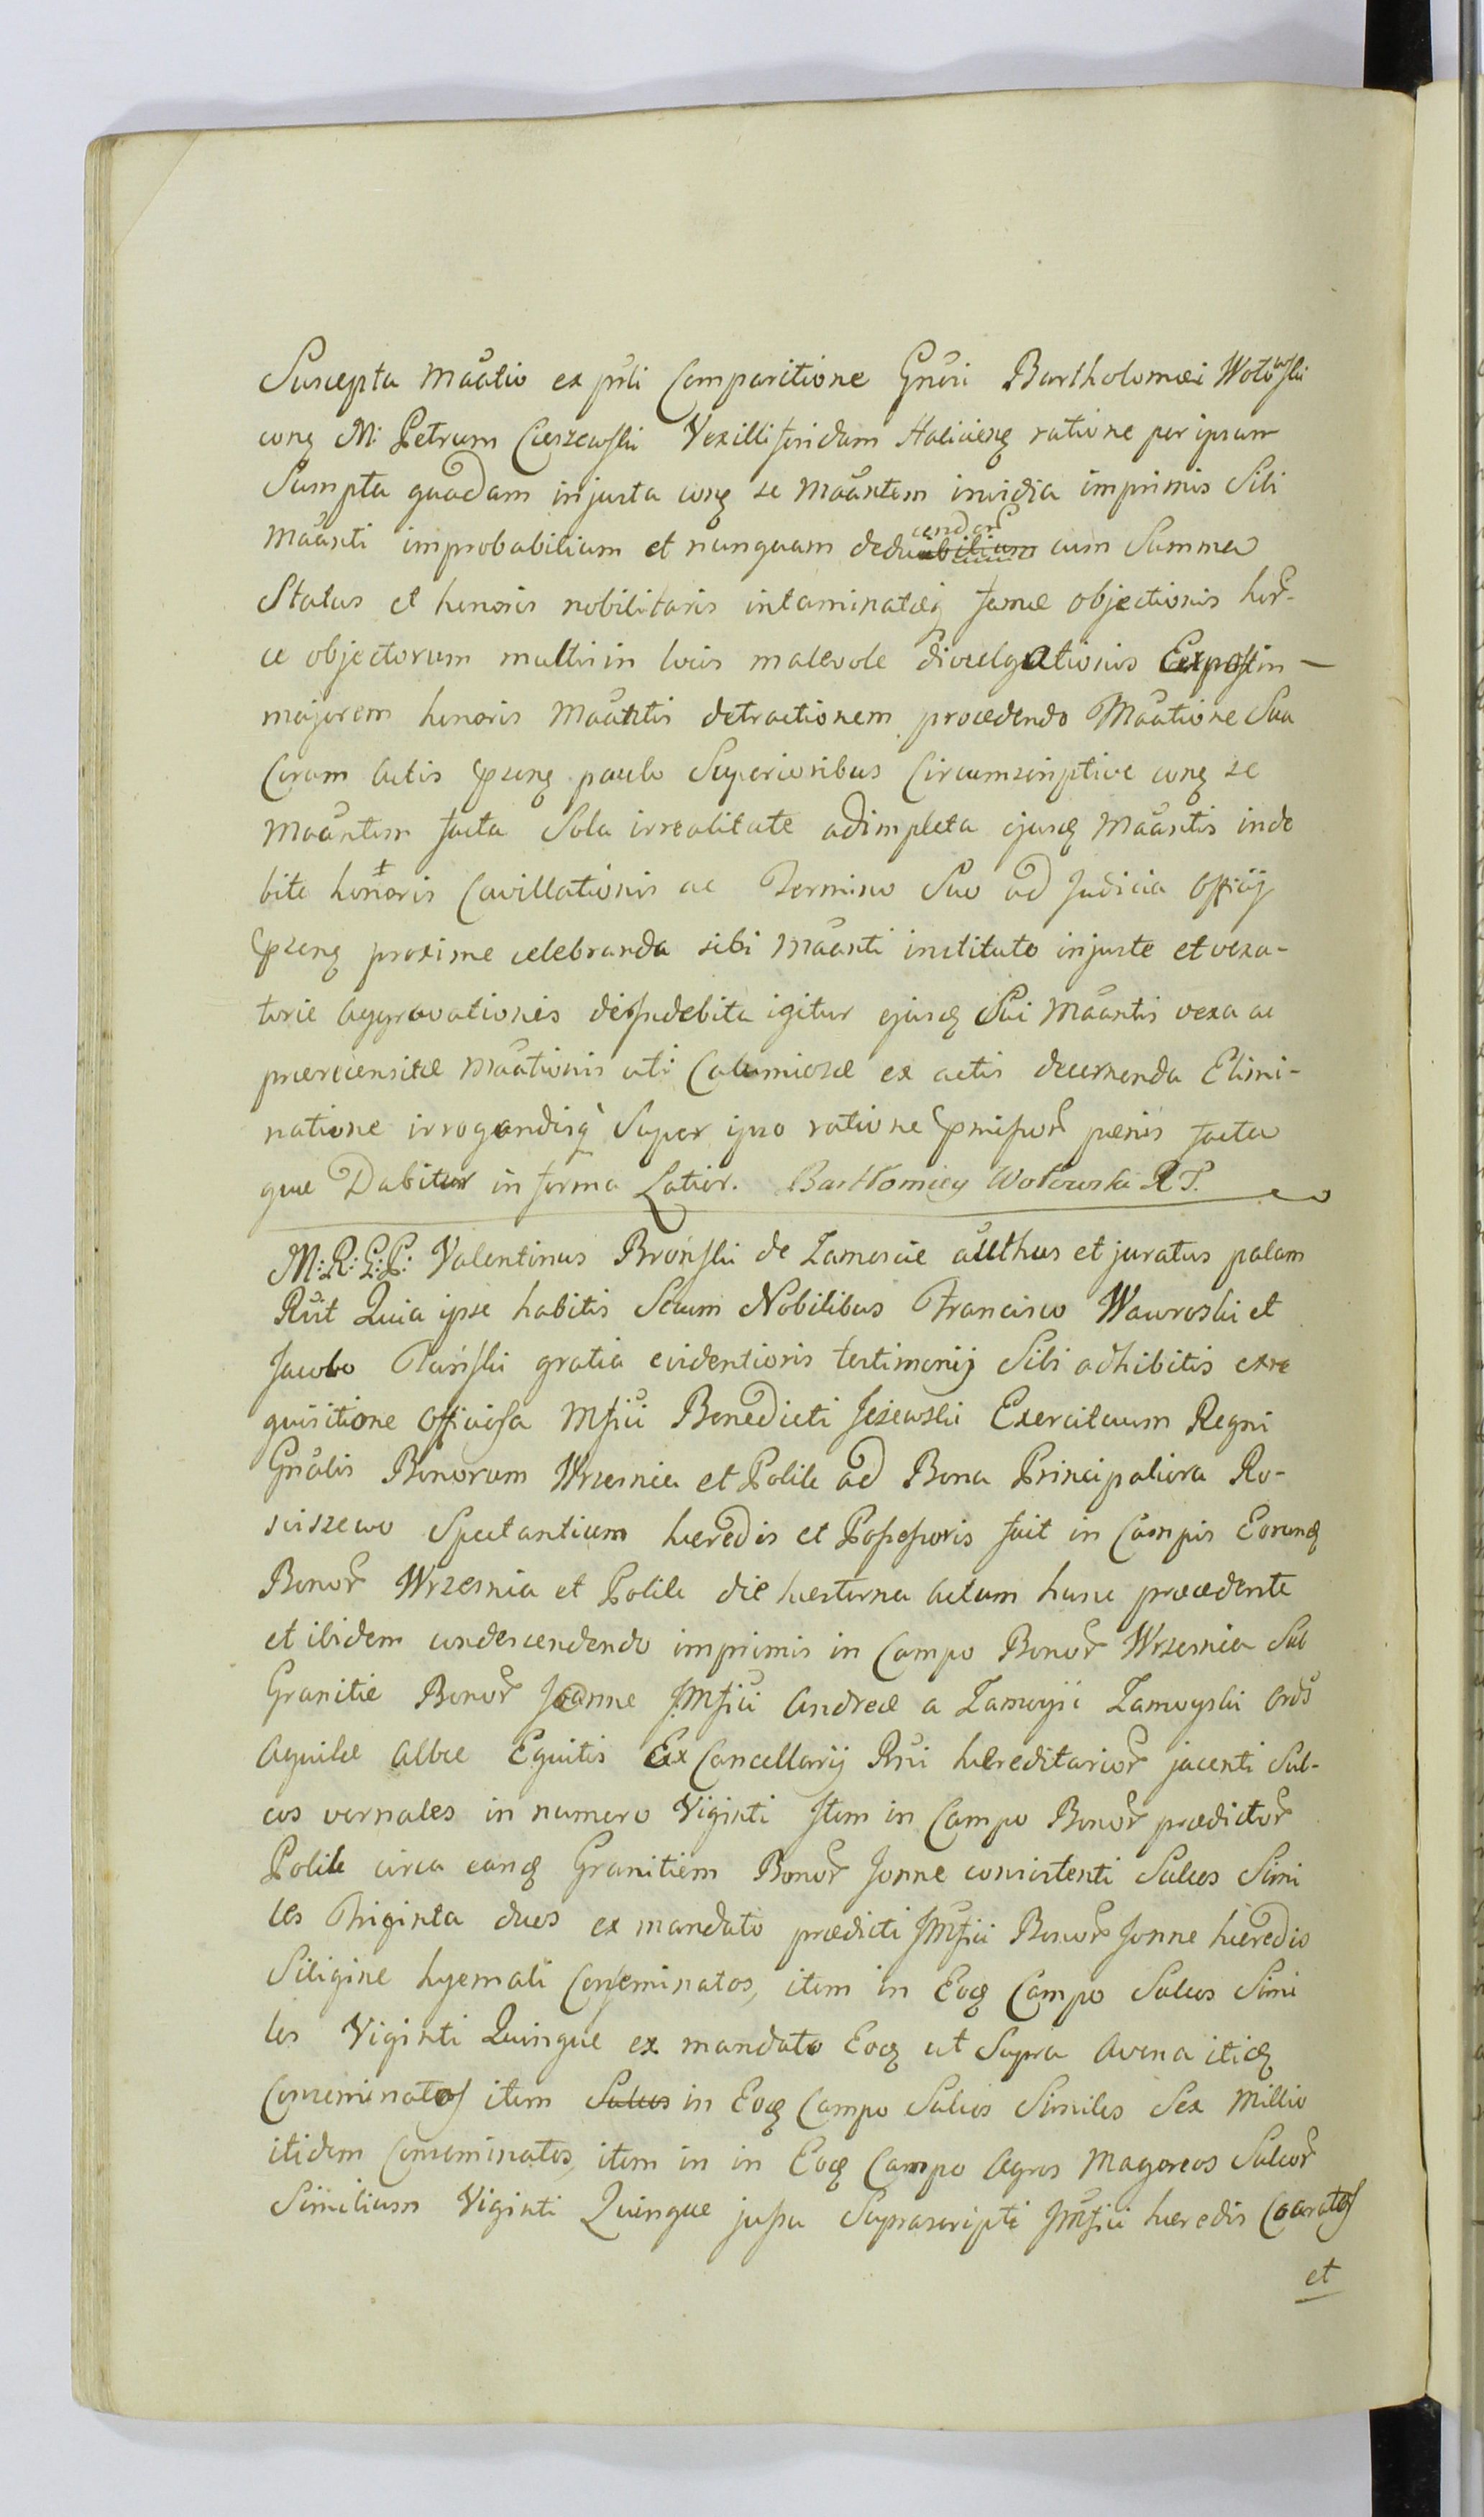 Suscepta Maãtio ex pñti Comparitione Gñõsi Bartholomæi Wołowski
conq M: Petrum Cieszewski Vexilliferidam Haliciens ratione per ipsum
Sumpta quadam injusta conq se Maãntem invidia imprimis Sibi
Maãnti improbabilium et nunquam deducendor̃ ~~ibilium~~ cum Summa
Status et honoris nobilitaris intaminatæq famæ objectionis hor̃-
ce objectorum multis in locis malevole divulgationis Expost in —
majorem honoris Maãntis detractionem procedendo Maãtione Sua
Coram Actis præsenq paulo Superioribus Circumscriptive conq se
Maãntem facta Sola irrealitate adimpleta ejusq Maãntis inde
bite honoris Cavillationis ac Termino Suo ad Judicia Officij
præsenq proxime celebranda sibi Maãnti instituto injuste et vexa-
torie Aggravationis de indebita igitur ejusq Sui Maãntis vexa ac
præreciensitæ Maãtionis uti Calumiosæ ex actis decernenda Elimi-
natione irrogandisq Super ipso ratione præmissor̃ pœnis facta
quæ Dabitur in forma Latior. Bartłomiey Wołowski RP.
M: R: G: P: Valentinus Broński de Zamoscie authus et juratus palam
Rũt Quia ipse habitis Secum Nobilibus Francisco Wawroski et
Jacobo Tański gratia evidentioris testimonij Sibi adhibitis ex re
quisitione Officiosa Mfici Benedicti Jeżewski Exercituum Regni
Gñalis Bonorum Wrzesnia et Polile ad Bona Principaliora Ro-
sciszewo Spectantium hæredis et Possessoris fuit in Campis Eorunq
Bonor̃ Wrzesnia et Polile die hesterna Actum hunc præcedente
et ibidem condescendendo imprimis in Campo Bonor̃ Wrzesnia Sub
Granitie Bonor̃ Joanne JMfici Andreæ a Zamoyście Zamoyski Ords
Aquilæ Albæ Equitis Ex Cancellarij Rñi hæreditarior̃ jacenti Sul-
cos vernales in numero Viginti Item in Campo Bonor̃ prædictor̃
Polile circa eanq Granitiem Bonor̃ Jonne consistenti Sulcos Simi
les Triginta duos ex mandato prædicti JMfici Bonor̃ Jonne hæredis
Siligine hyemali Conseminatos, item in Eoq Campo Sulcos Simi
les Viginti Quinque ex mandato Eoq ut Supra Avena itiq
Conseminatos item ~~Sulcos~~ in Eoq Campo Sulcos Similes Sex Millio
itidem Conseminatos, item in in Eoq Campo Agros Magoreos Sulcor̃
Similium Viginti Quinque jussu Suprascripti JMfici hæredis Coaratos
et